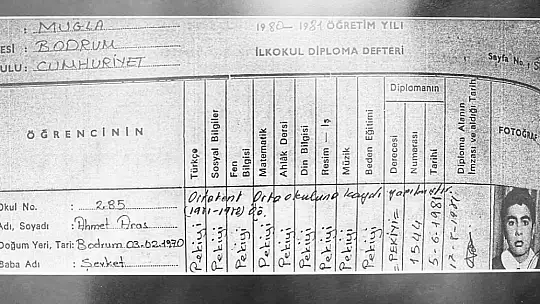 : MUĞLA
ESİ : BODRUM
ULU : CUMHURİYET
1980 - 1981 ÖĞRETİM YILI
İLKOKUL DİPLOMA DEFTERİ
Sayfa No. : 5
ÖĞRENCİNİN
Türkçe
Sosyal Bilgiler
Fen Bilgisi
Matematik
Ahlâk Dersi
Din Bilgisi
Resim — İş
Müzik
Beden Eğitimi
Diplomanın
Derecesi
Numarası
Tarihi
Diploma Alanın İmzası ve aldığı Tarih
FOTOĞRAF
Okul No. : 285
Adı, Soyadı : Ahmet Aras
Doğum Yeri, Tari: Bodrum 03.02.1970
Baba Adı : Sevket
Ortakent Ortaokuluna kaydı yapılmıştır.
Pekiyi
Pekiyi
Pekiyi
Pekiyi
Pekiyi
Pekiyi
Pekiyi
Pekiyi
Pekiyi
=PEKİYİ=
1544
5-6-1981